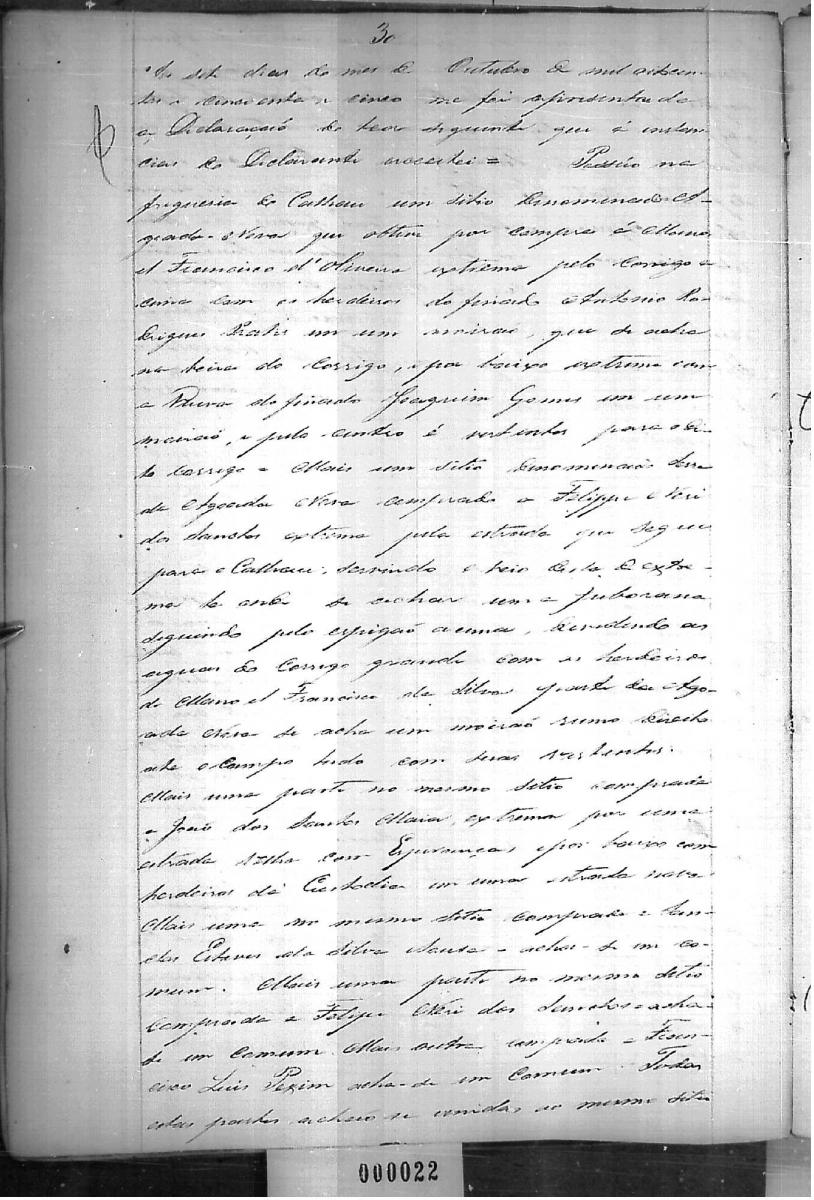 30
As sete dias do mes de Outubro de mil oitocen-
tos e cincoenta e cinco me foi apresentada
a Declaração do teor seguinte que é instan-
cias do Declarante acceitei = Possúo na
freguesia do Calhau um sitio denominado A-
goada Nova que obtive por compra á Mano-
el Francisco d'Oliveira extrema pelo corrigo a
cima com os herdeiros do finado Antonio Ro-
drigues Prates em um moirão, que se acha
na beira do corrigo, e por baixo extrema com
a Viuva do finado Joaquim Gomes em um
moirão, e pelo centro é vertentes para o di-
to corrigo = Mais um sitio denominado Serra
da Agoada Nova comprado a Felippe Neri
dos Sanctos extrema pela estrada que segue
para o Calhau, servindo o veio desta de extre-
ma te onde se achar uma
seguindo pelo espigaõ acima, dividindo as
aguas do corrigo grande com os herdeiros
de Mano el Francisco da Silva parte da Ago-
ada Nova se acha um moiraõ rumo direito
athe o Campo tudo com suas vertentes.
Mais uma parte no mesmo sitio comprada
a Joaõ dos Santos Maia, extrema por uma
estrada velha com Esperança, e por baixo com
herdeiros de Custodia em uma estrada nova
Mais uma no mesmo sitio comprada a San-
ctos Esteves da Silva acha-se em co-
mum. Mais uma parte no mesmo sitio
comprada a Felipe Neri dos Sanctos = acha-
se em Comum. Mais outra comprada a Fran-
cisco Luis acha-se em Comum. Todas
estas partes acháo se unidas ao mesmo sitio
000022